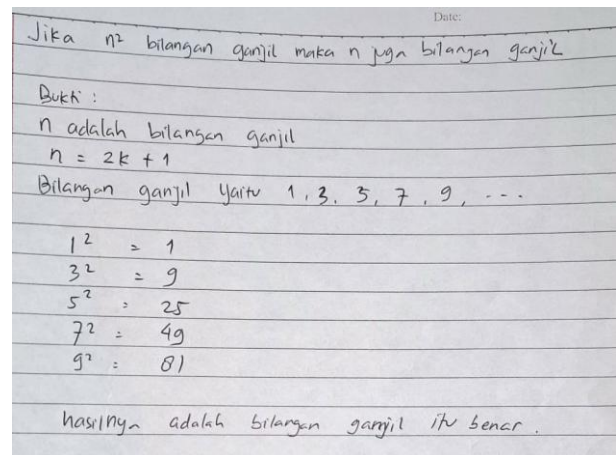 Date:
Jika n² bilangan ganjil maka n juga bilangan ganjil
Bukti :
n adalah bilangan ganjil
n = 2k + 1
Bilangan ganjil yaitu 1, 3, 5, 7, 9, ---
1² = 1
3² = 9
5² = 25
7² = 49
9² = 81
hasilnya adalah bilangan ganjil itu benar.